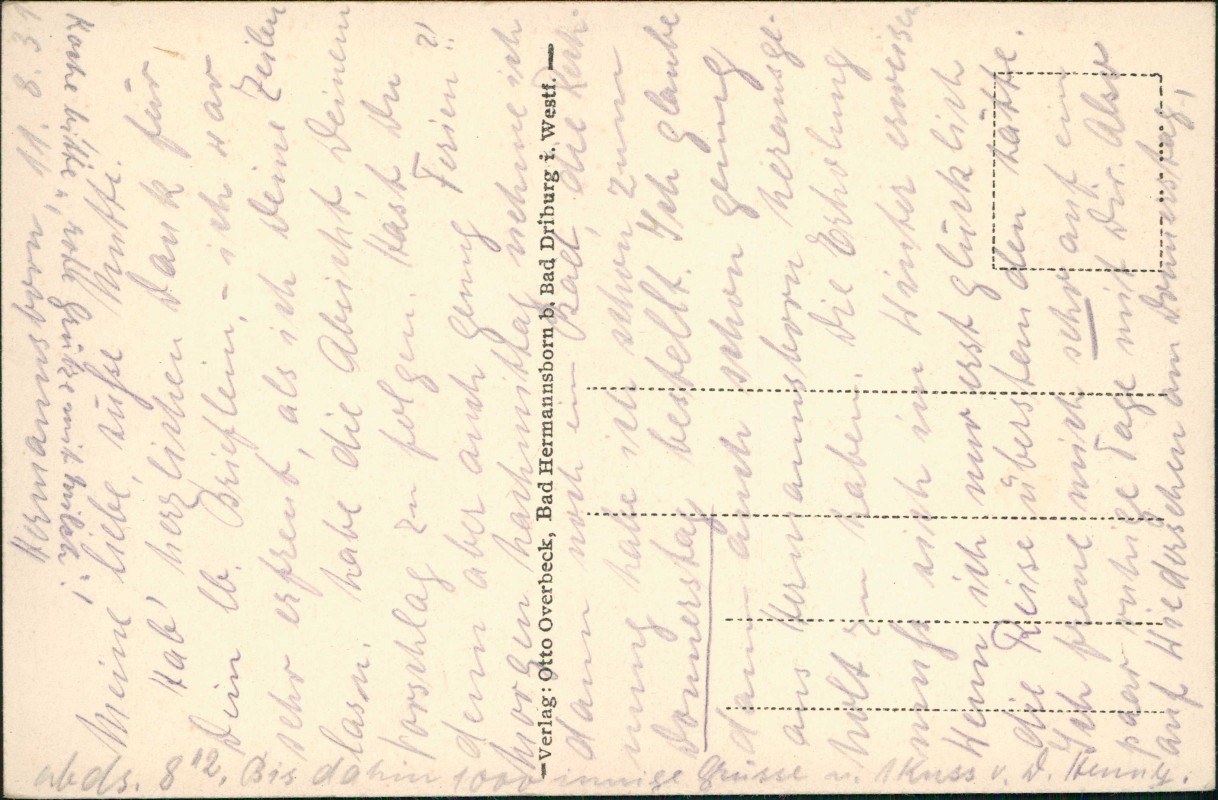 Hermannsborn 11. 8. 31
Koche bitte „rote Grütze mit Milch“!
Meine liebe, süße Mutti.
Hab' herzlichen Dank für
Dein lb. Brieflein, - ich war
sehr erfreut, als ich Deine Zeilen
las. habe die Absicht, Deinem
Vorschlag zu folgen. Hast Du
denn aber auch genug Ferien?!
Morgen nachmittag nehme ich
dann noch ein Bad, die Rech-
nung habe ich schon zum
Donnerstag bestellt. Ich glaube
dann auch schon genug
aus Hermannsborn herausge-
holt zu haben. Die Erholung
muß sich im Winter erweisen
Wenn ich nur erst glücklich
die Reise überstanden hätte.
Ich freue mich sehr auf ein
paar ruhige Tage mit Dir. Also
auf Wiedersehen am Donnerstag
abds. 8¹². Bis dahin 1000 innige Grüsse u. 1 Kuss v. D. Henny.
—Verlag: Otto Overbeck, Bad Hermannsborn b. Bad Driburg i. Westf.—